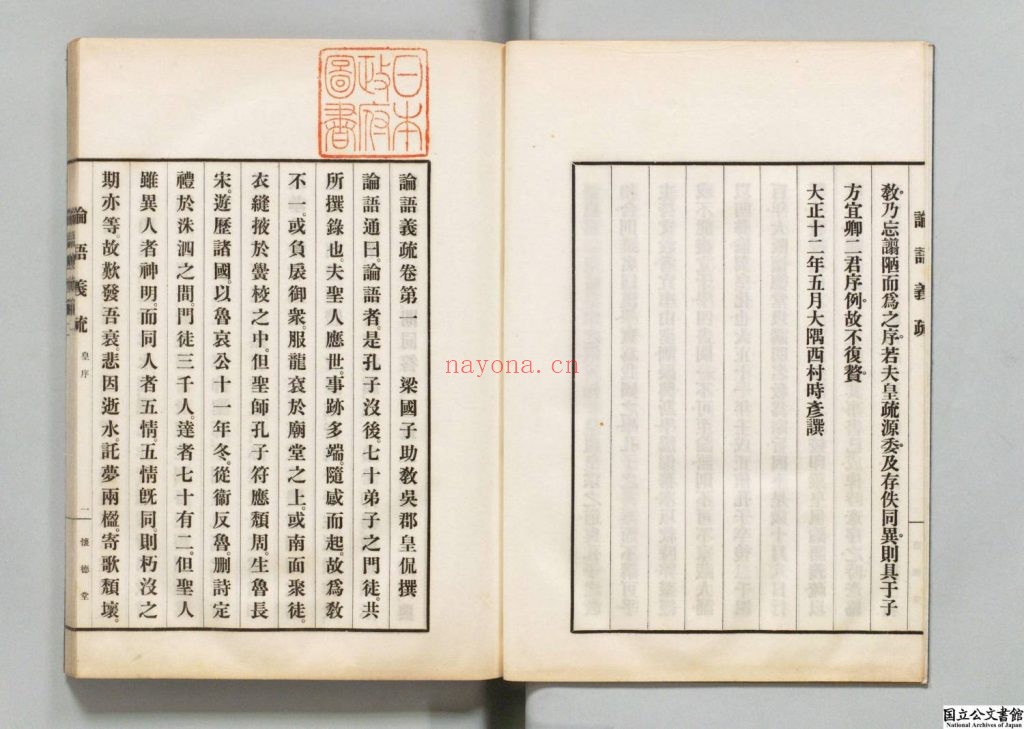 論語義疏
敎乃忘譾陋而爲之序。若夫皇疏源委及存佚同異。則具于子
方宜卿二君序例。故不復贅
大正十二年五月大隅西村時彥譔
日本
政府
圖書
論語義疏卷第一　梁國子助敎吳郡皇侃撰
論語通曰。論語者。是孔子沒後。七十弟子之門徒。共
所撰錄也。夫聖人應世。事跡多端。隨感而起。故爲敎
不一。或負扆御衆。服龍袞於廟堂之上。或南面聚徒。
衣縫掖於黌校之中。但聖師孔子符應頹周。生魯長
宋。遊歷諸國。以魯哀公十一年冬。從衞反魯。刪詩定
禮於洙泗之間。門徒三千人。達者七十有二。但聖人
雖異人者神明。而同人者五情。五情旣同。則朽沒之
期亦等。故歎發吾衰。悲因逝水。託夢兩楹。寄歌頹壞。
論語義疏　皇序　一　懷德堂
nayona.cn
国立公文書館
National Archives of Japan